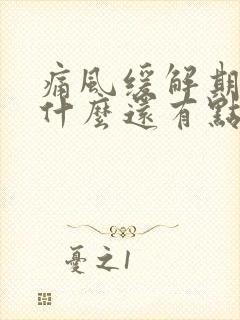 痛風緩解期
什麼還有點
憂之1